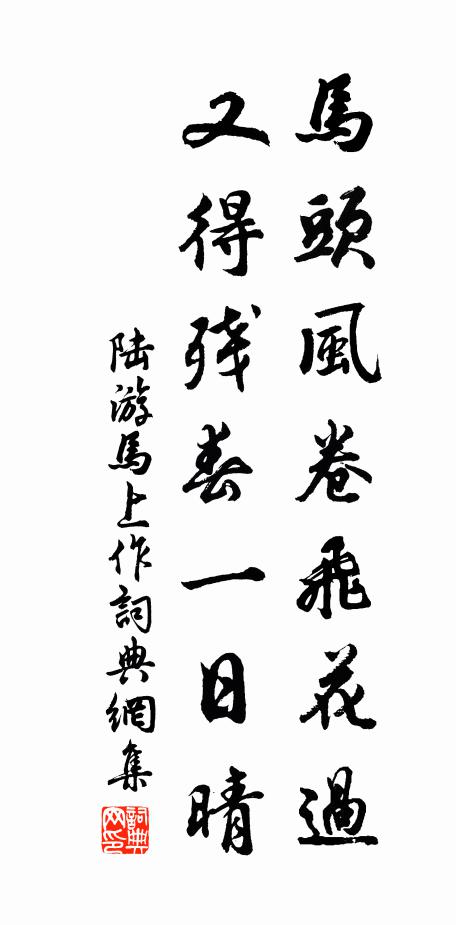 馬頭風卷飛花過
又得残春一日晴
陆游馬上作詞典網集
詞典网印